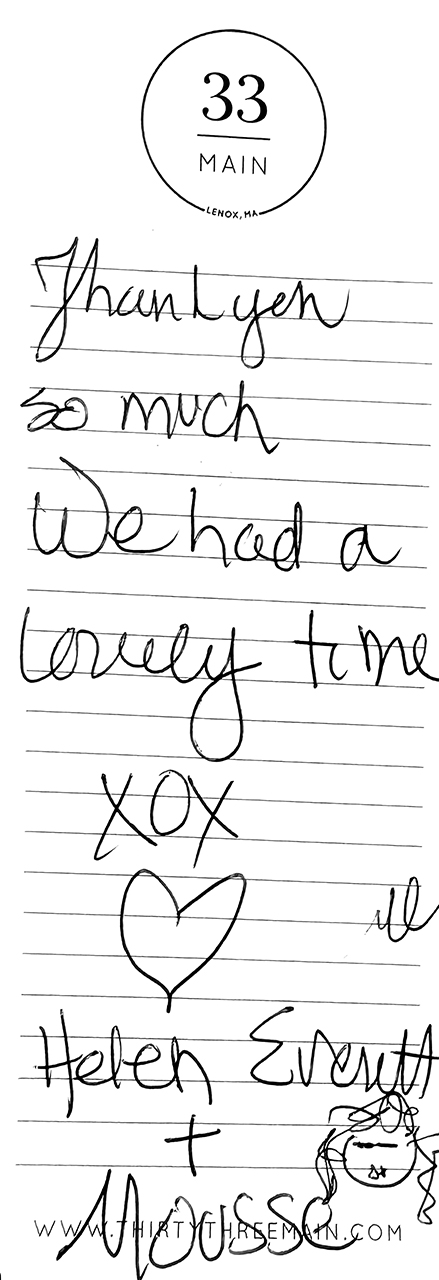 33
MAIN
LENOX, MA
Thank you
so much
We had a
lovely time
XOX
Helen Everett
+
Mousse
WWW.THIRTYTHREEMAIN.COM